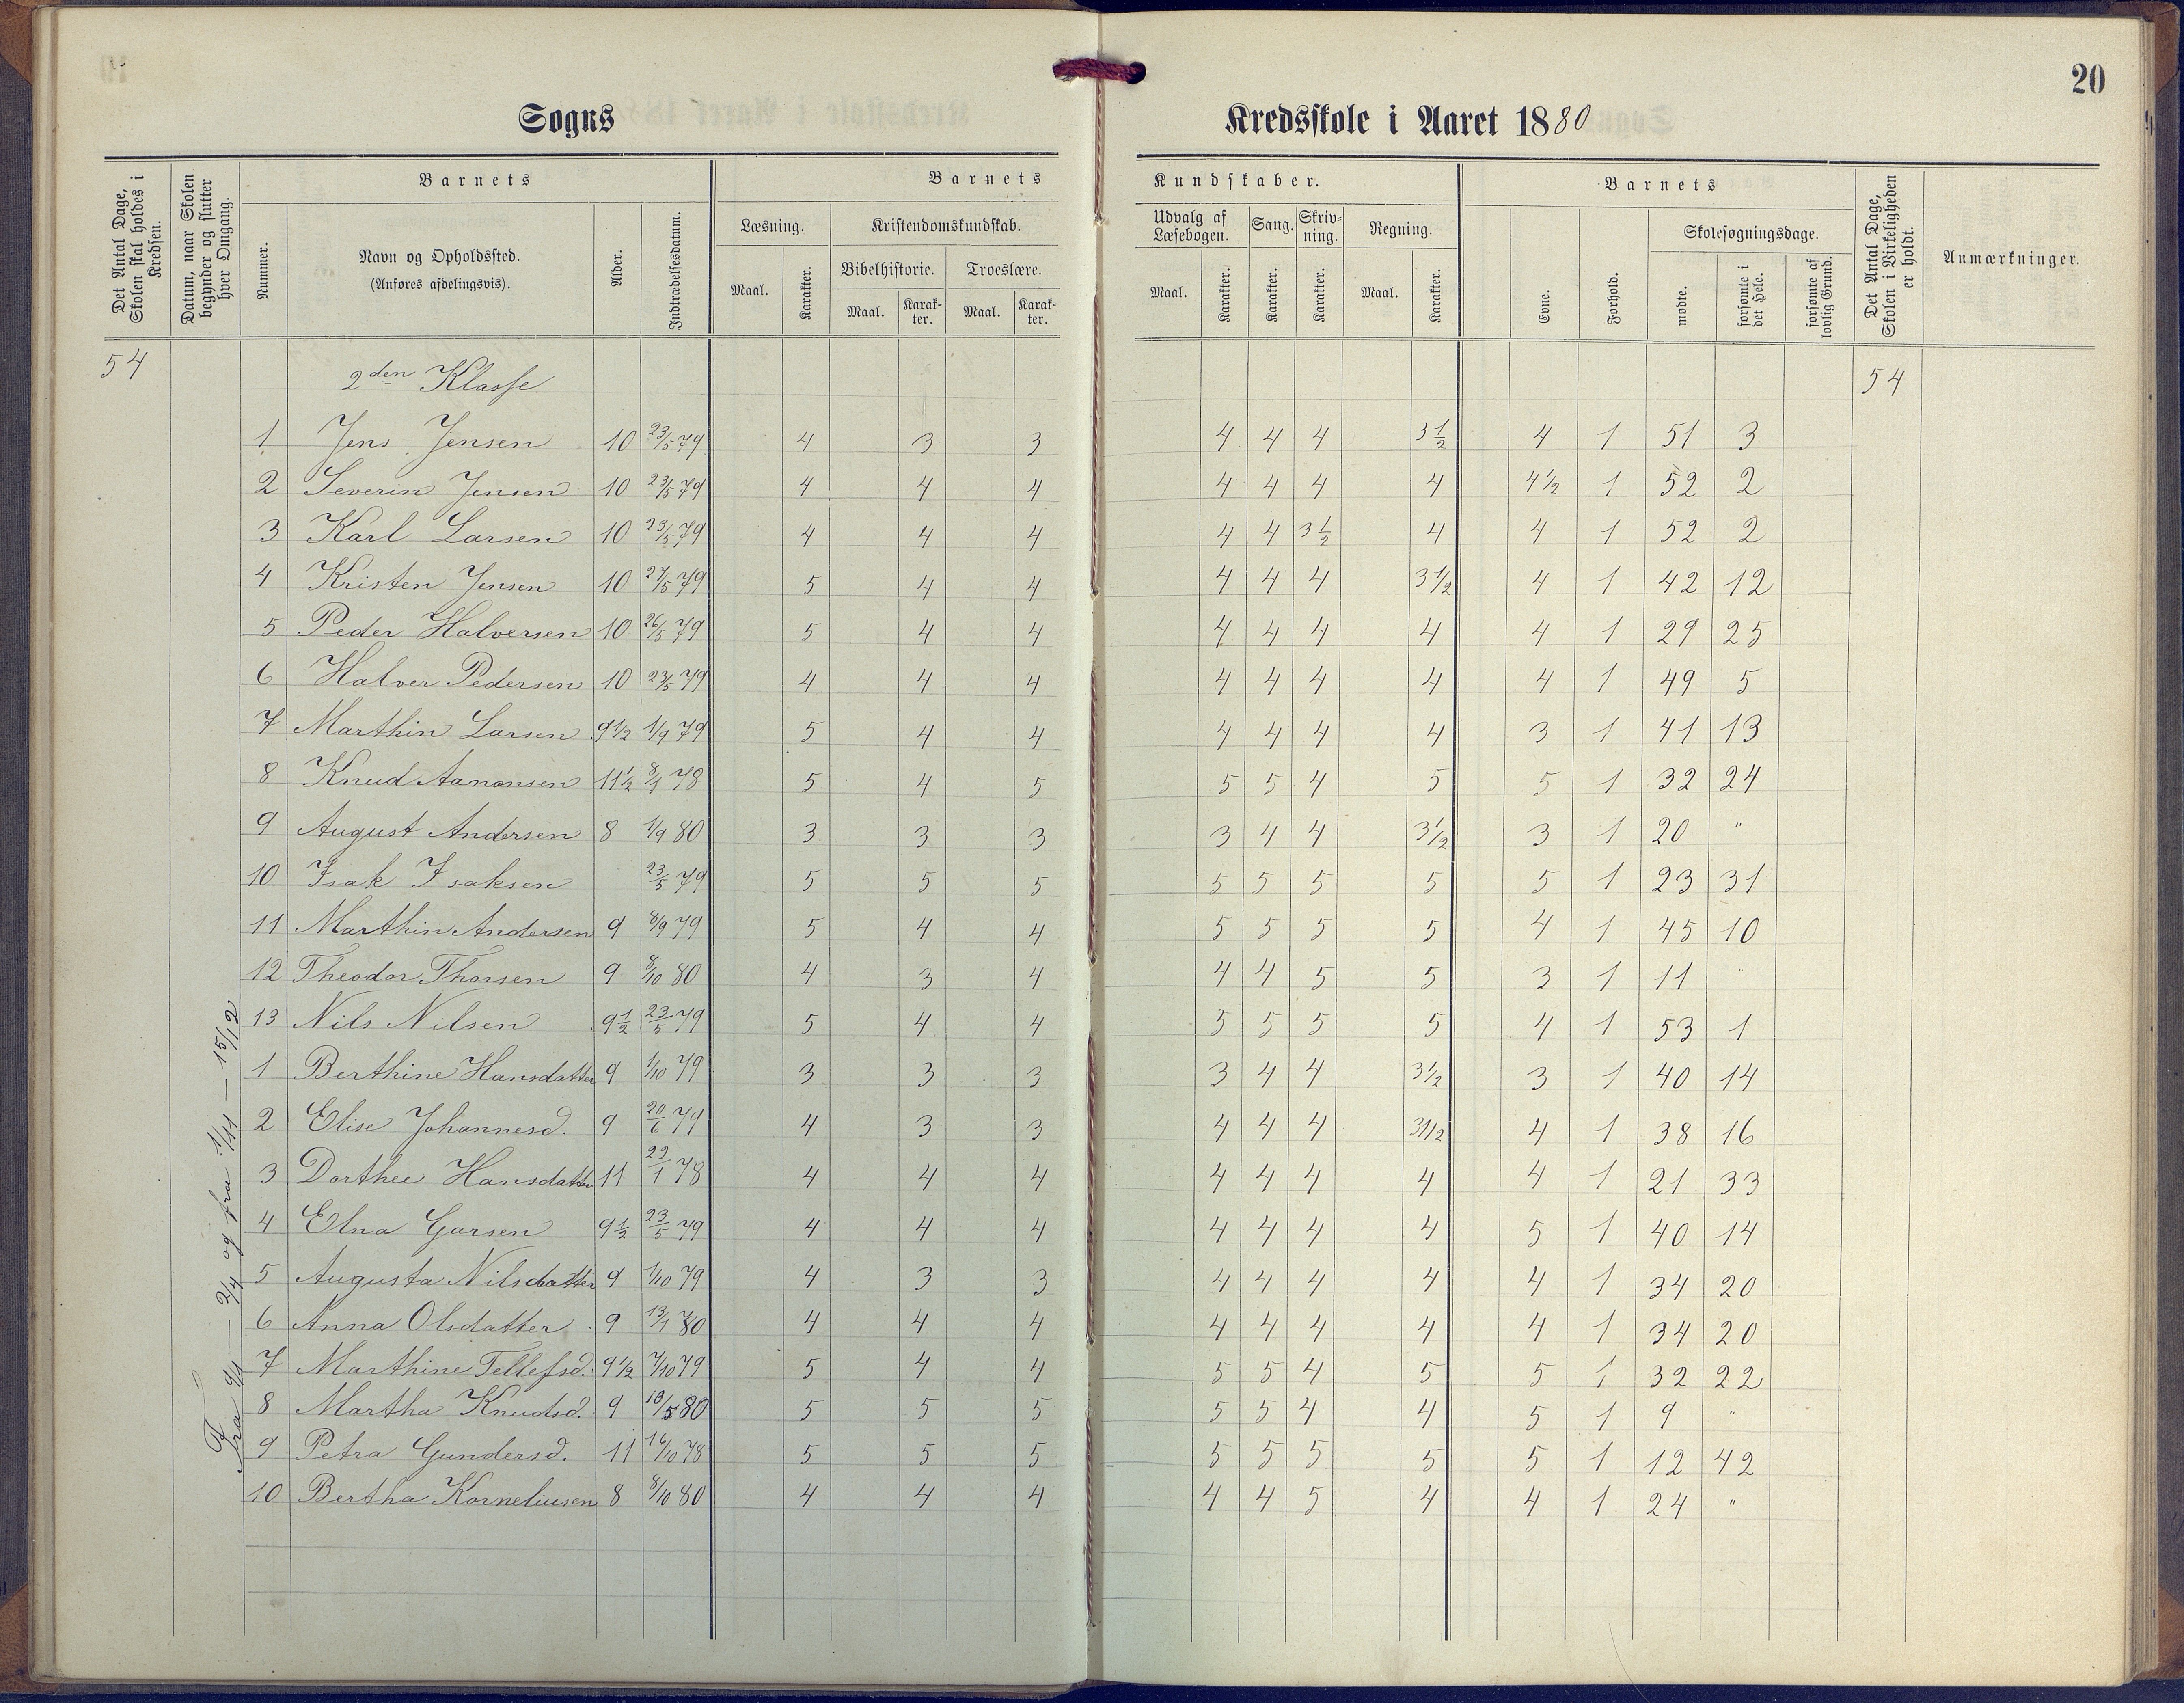 20
Sogns Kredsskole i Aaret 1880
Det Antal Dage, Skolen skal holdes i Kredsen.
Datum, naar Skolen begynder og slutter hver Omgang.
Barnets
Nummer.
Navn og Opholdssted.
(Anføres afdelingsvis).
Alder.
Indtrædelsesdatum.
Barnets Kundskaber.
Læsning.
Maal. Karakter.
Kristendomskundskab.
Bibelhistorie. Troeslære.
Maal. Karakter. Maal. Karakter.
Udvalg af Læsebogen.
Maal. Karakter.
Sang. Karakter.
Skrivning. Karakter.
Regning.
Maal. Karakter.
Barnets
Evne. Forhold.
Skolesøgningsdage.
mødte. forsømte i det Hele. forsømte af lovlig Grund.
Det Antal Dage, Skolen i Virkeligheden er holdt.
Anmærkninger.
54 2den Klasse 54
1 Jens Jensen 10 23/5 79 4 3 3 4 4 4 3 1/2 4 1 51 3
2 Severin Jensen 10 23/5 79 4 4 4 4 4 4 4 4 1/2 1 52 2
3 Karl Larsen 10 23/5 79 4 4 4 4 4 3 1/2 4 4 1 52 2
4 Kristen Jensen 10 27/5 79 5 4 4 4 4 4 3 1/2 4 1 42 12
5 Peder Halversen 10 26/5 79 5 4 4 4 4 4 4 4 1 29 25
6 Halver Pedersen 10 23/5 79 4 4 4 4 4 4 4 4 1 49 5
7 Marthin Larsen 9 1/2 1/9 79 5 4 4 4 4 4 4 3 1 41 13
8 Knud Aanonsen 11 1/2 8/1 78 5 4 5 5 5 4 5 5 1 32 24
9 August Andersen 8 1/9 80 3 3 3 3 4 4 3 1/2 3 1 20 "
10 Isak Isaksen 23/5 79 5 5 5 5 5 5 5 5 1 23 31
11 Marthin Andersen 9 8/9 79 5 4 4 5 5 5 5 4 1 45 10
12 Theodor Thorsen 9 8/10 80 4 3 4 4 4 5 5 3 1 11 "
13 Nils Nilsen 9 1/2 23/5 79 5 4 4 5 5 5 5 4 1 53 1
1 Berthine Hansdatter 9 1/10 79 3 3 3 3 4 4 3 1/2 3 1 40 14
2 Elise Johannesd. 9 20/6 79 4 3 3 4 4 4 3 1/2 4 1 38 16
3 Dorthee Hansdatter 11 22/1 78 4 4 4 4 4 4 4 4 1 21 33
4 Elna Garsen 9 1/2 23/5 79 4 4 4 4 4 4 4 5 1 40 14
5 Augusta Nilsdatter 9 1/10 79 4 3 3 4 4 4 4 4 1 34 20
6 Anna Olsdatter 9 13/1 80 4 4 4 4 4 4 4 4 1 34 20
7 Marthine Tellefsd. 9 1/2 7/10 79 5 4 4 5 5 4 5 5 1 32 22
8 Martha Knudsd. 9 18/5 80 5 5 5 5 5 4 4 5 1 9 "
9 Petra Gundersd. 11 16/10 78 5 5 5 5 5 5 5 5 1 12 42
10 Bertha Korneliusen 8 8/10 80 4 4 4 4 4 5 4 4 1 24 "
Fra — 2/4 og fra 1/11 — 15/12